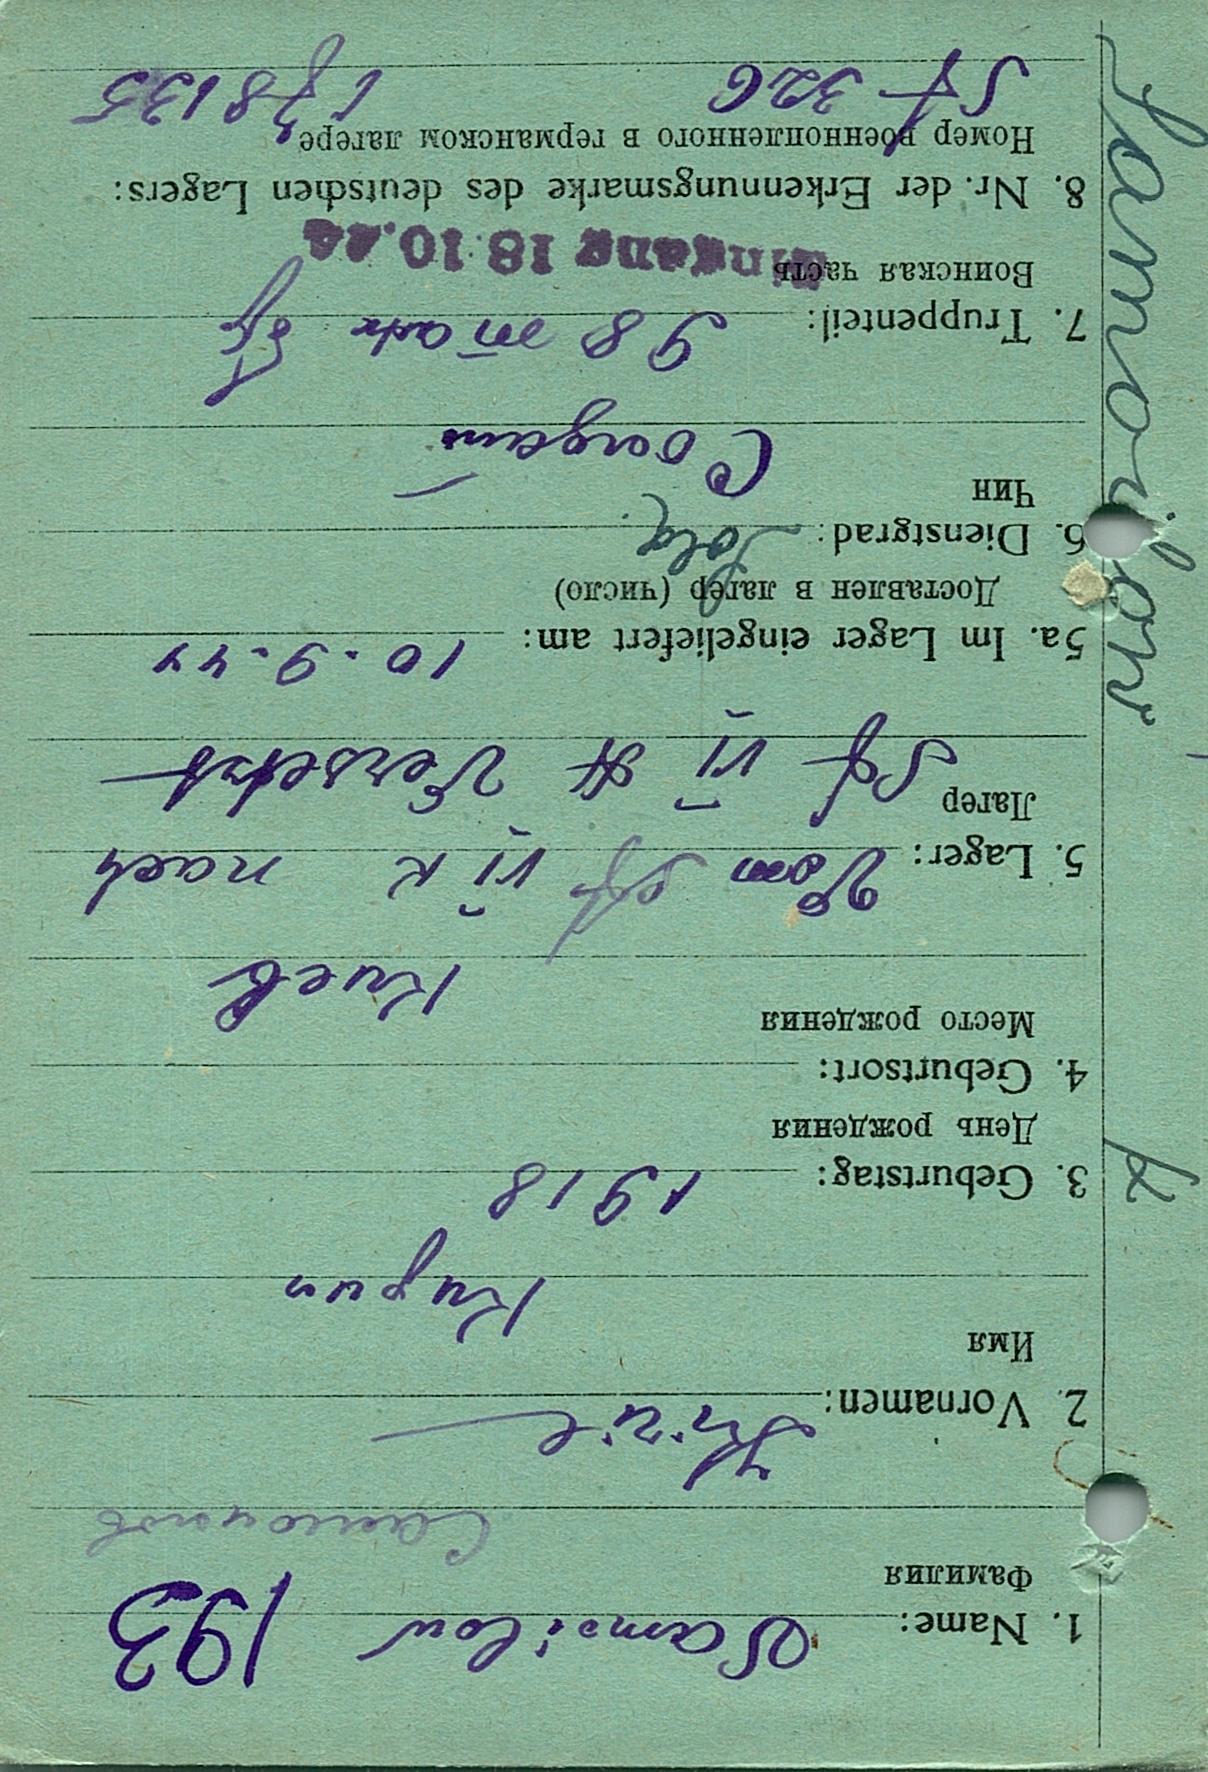 Samoilow
K
193
1. Name: Samoilow
Фамилия
Самойлов
2. Vornamen: Kiril
Имя
Кирил
3. Geburtstag: 1918
День рождения
4. Geburtsort:
Место рождения
Киев
5. Lager: Vom VI K nach
Лагер
VI A Versetzt
5a. Im Lager eingeliefert am: 10.9.44
Доставлен в лагер (число)
6. Dienstgrad: Sold.
Чин
Солдат
7. Truppenteil: 98
Воинская часть
Eingang 18.10.44
8. Nr. der Erkennungsmarke des deutschen Lagers:
Номер военнопленного в германском лагере
326